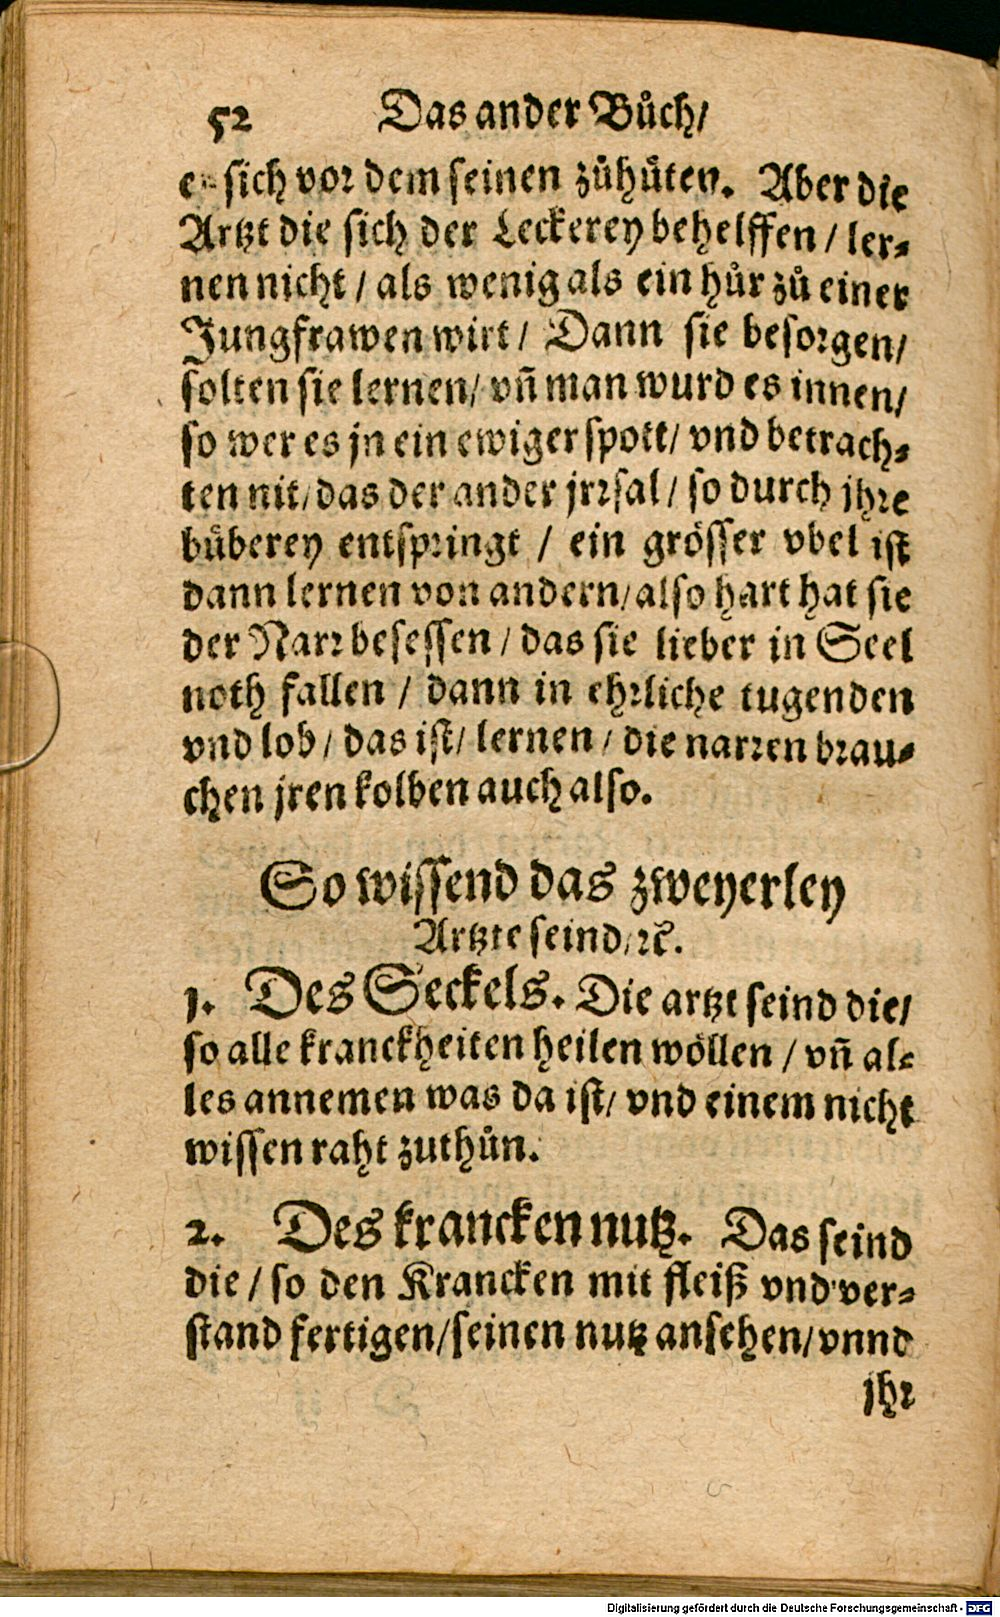 52 Das ander Bůch/
er sich vor dem seinen zůhůten. Aber die
Artzt die sich der Leckerey behelffen / ler-
nen nicht / als wenig als ein hůr zů einer
Jungfrawen wirt / Dann sie besorgen/
solten sie lernen/ vñ man wurd es innen/
so wer es jn ein ewiger spott/ vnd betrach-
ten nit/ das der ander jrrsal / so durch jhre
bůberey entspringt / ein grösser vbel ist
dann lernen von andern/ also hart hat sie
der Narr besessen / das sie lieber in Seel
noth fallen / dann in ehrliche tugenden
vnd lob/ das ist/ lernen / die narren brau-
chen jren kolben auch also.
So wissend das zweyerley
Artzte seind/ ꝛc̃.
1. Des Seckels. Die artzt seind die/
so alle kranckheiten heilen wöllen / vñ al-
les annemen was da ist/ vnd einem nicht
wissen raht zuthůn.
2. Des krancken nutz. Das seind
die / so den Krancken mit fleiß vnd ver-
stand fertigen/ seinen nutz ansehen/ vnnd
jhr
Digitalisierung gefördert durch die Deutsche Forschungsgemeinschaft - DFG